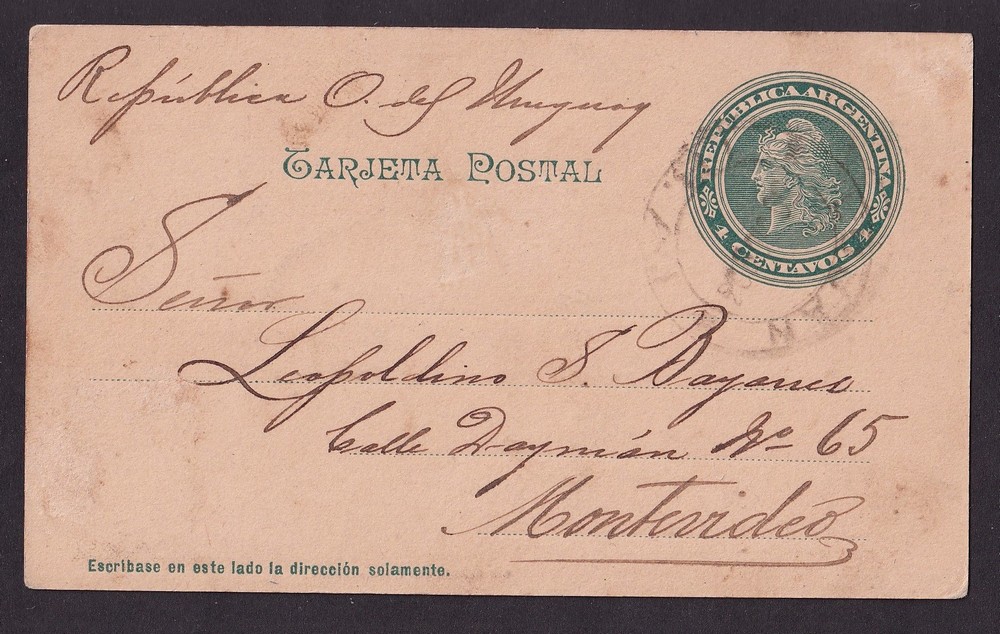 República O. del Uruguay
REPUBLICA ARGENTINA
4 CENTAVOS 4
TARJETA POSTAL
Señor
Leopoldino S.
Calle Daymán Nº 65
Montevideo
Escríbase en este lado la dirección solamente.